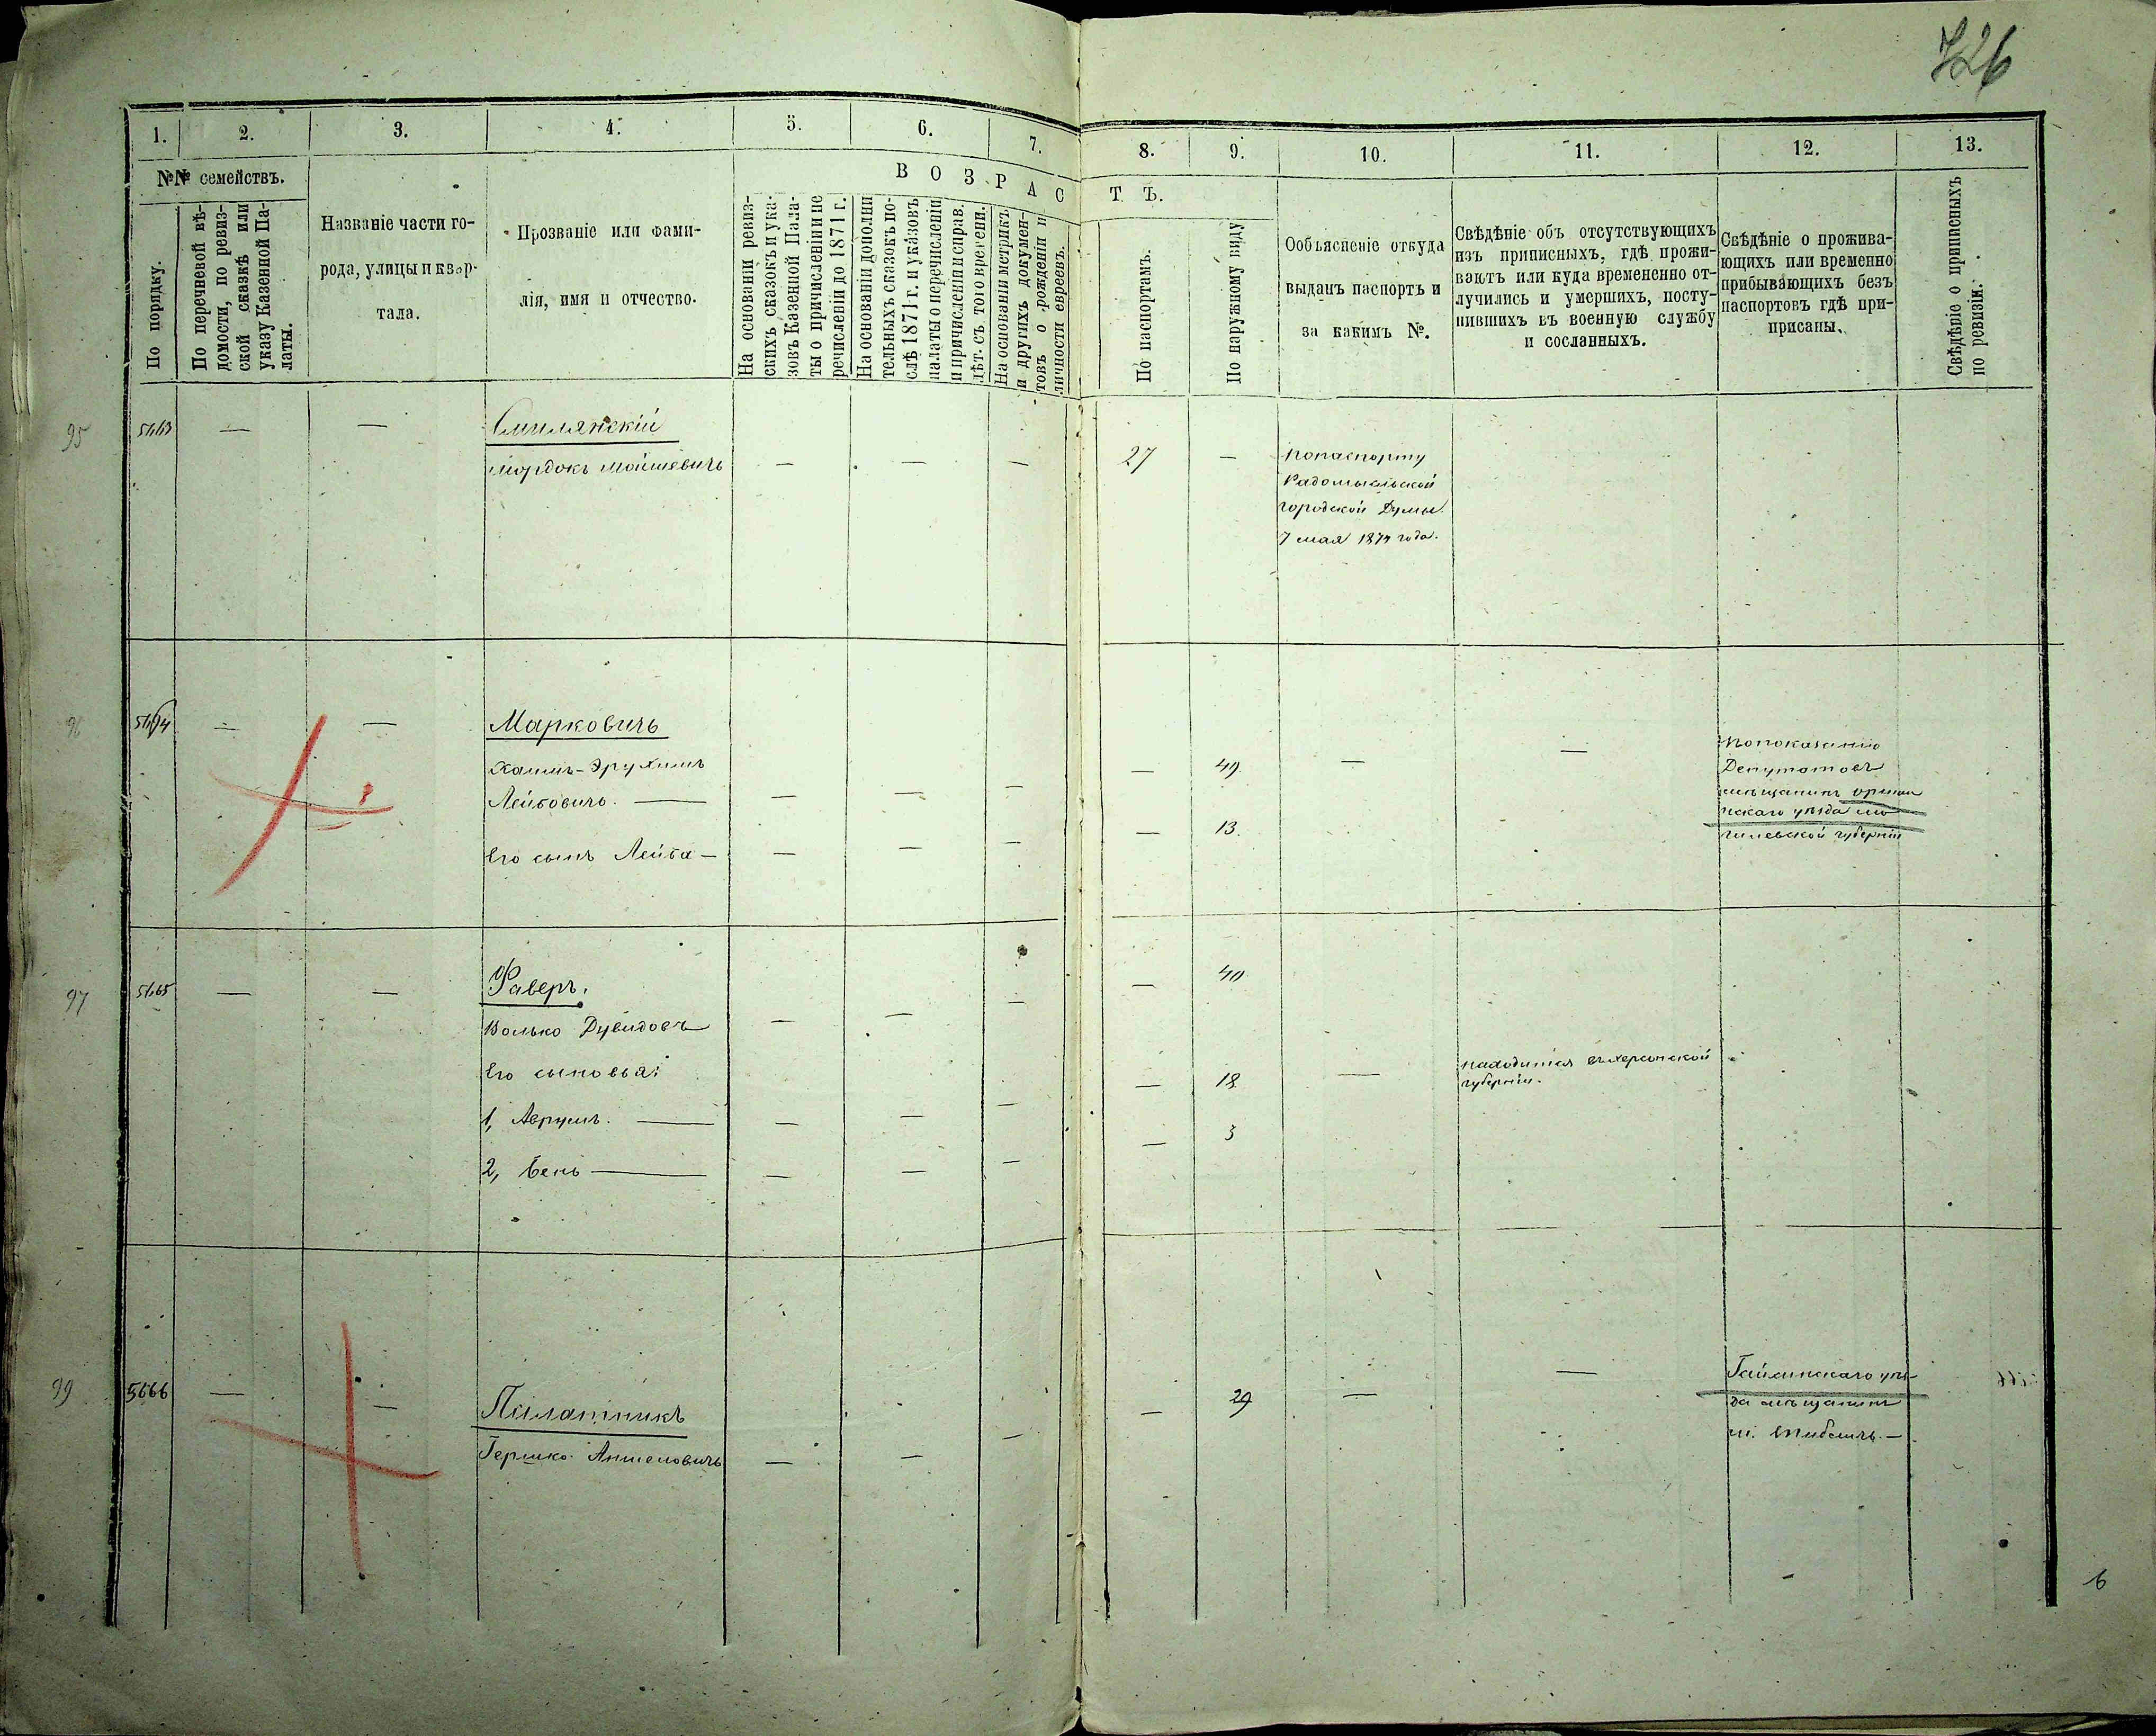 726
1. 2. 3. 4. 5. 6. 7. 8. 9. 10. 11. 12. 13.
№№ семействъ.
В О З Р А С Т Ъ.
По порядку.
По перечневой вѣ-
домости, по ревиз-
ской сказкѣ или
указу Казенной Па-
латы.
Названіе части го-
рода, улицы и квар-
тала.
Прозваніе или фами-
лія, имя и отчество.
На основаніи ревиз-
скихъ сказокъ и ука-
зовъ Казенной Пала-
ты о причисленіи и пе
речисленіи до 1871 г.
На основаніи дополни
тельныхъ сказокъ по-
слѣ 1871 г. и указовъ
палаты о перечисленіи
и причисленіи и справ.
лѣт. съ того времени.
На основаніи метрикъ
и другихъ докумен-
товъ о рожденіи и
личности евреевъ.
По паспортамъ.
По наружному виду
Ообъясненіе откуда
выданъ паспортъ и
за какимъ №.
Свѣдѣніе объ отсутствующихъ
изъ приписныхъ, гдѣ прожи-
ваютъ или куда временно от-
лучились и умершихъ, посту-
пившихъ въ военную службу
и сосланныхъ.
Свѣдѣніе о прожива-
ющихъ или временно
прибывающихъ безъ
паспортовъ гдѣ при-
писаны.
Свѣдѣніе о приписныхъ
по ревизіи.
95 5663 — — Смилянскій
Мордокъ Мойшевичъ — — — 27 —
По паспорту
Радомысльской
городской Думы
7 мая 1874 года.
96 5664 — — Марковичъ
Хаимъ-Эрухимъ
Лейбовичъ. — — — — — 49 — —
Его сынъ Лейба — — — — — 13.
По показанію
Депутатовъ
мѣщанинъ оршан
скаго уѣзда мо
гилевской губерніи
97 5665 — — Фаверъ.
Волько Дувидовъ — — — — 40
Его сыновья:
1, Аврумъ. — — — — — 18 —
находится въ херсонской
губерніи.
2, Бень — — — — — 3
99 5666 — — Пилатникъ
Гершко Аншеловичъ — — — — 29 — —
Гайсинскаго уѣз-
да мѣщанинъ
6